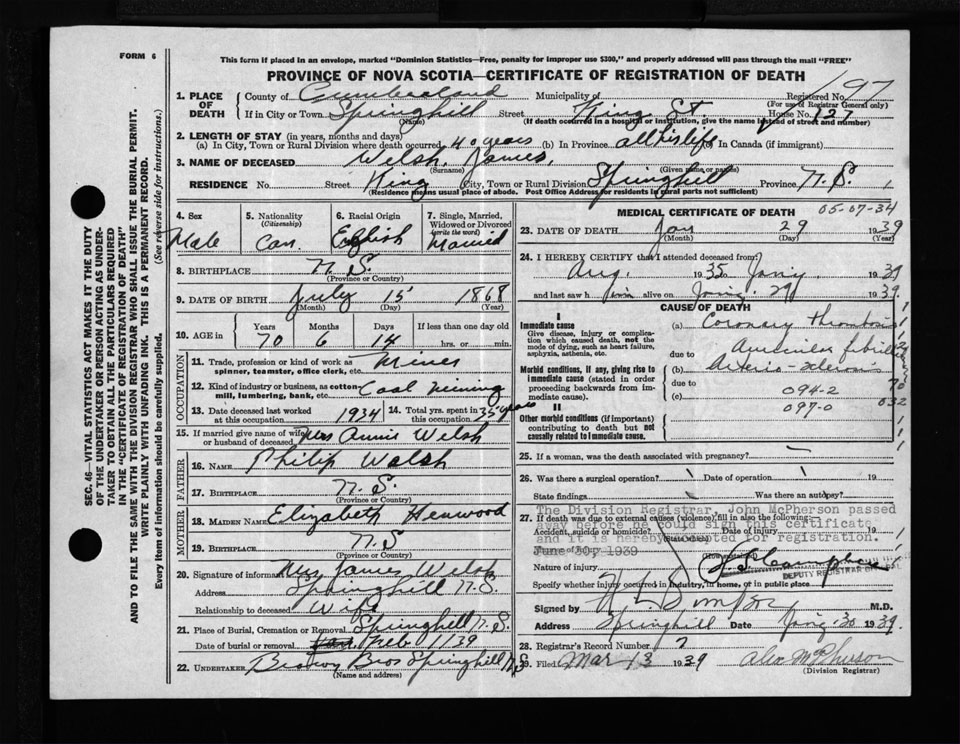 FORM 6
This form if placed in an envelope, marked "Dominion Statistics—Free, penalty for improper use $300," and properly addressed will pass through the mail "FREE"
PROVINCE OF NOVA SCOTIA—CERTIFICATE OF REGISTRATION OF DEATH
197
1. PLACE OF DEATH County of Cumberland Municipality of Registered No.
(For use of Registrar General only)
If in City or Town Springhill Street King St. House No. 127
(Name) (If death occurred in a hospital or institution, give the name instead of street and number)
2. LENGTH OF STAY (in years, months and days)
(a) In City, Town or Rural Division where death occurred 40 years (b) In Province all his life (c) In Canada (if immigrant)
3. NAME OF DECEASED Welsh, James,
(Surname) (Given name or names)
RESIDENCE No. Street King City, Town or Rural Division Springhill Province N.S.
(Residence means usual place of abode. Post Office Address for residents in rural parts not sufficient)
4. Sex Male
5. Nationality (Citizenship) Can.
6. Racial Origin English
7. Single, Married, Widowed or Divorced (write the word) Married
8. BIRTHPLACE N.S.
(Province or Country)
9. DATE OF BIRTH July 15 1868
(Month) (Day) (Year)
10. AGE in Years Months Days If less than one day old
70 6 14 hrs. or min.
OCCUPATION
11. Trade, profession or kind of work as spinner, teamster, office clerk, etc. Miner
12. Kind of industry or business, as cotton-mill, lumbering, bank, etc. Coal Mining
13. Date deceased last worked at this occupation 1934
14. Total yrs. spent in this occupation 35 years
15. If married give name of wife or husband of deceased Mrs Annie Welsh
FATHER
16. NAME Philip Walsh
17. BIRTHPLACE N.S.
(Province or Country)
MOTHER
18. MAIDEN NAME Elizabeth Henwood
19. BIRTHPLACE N.S
(Province or Country)
20. Signature of informant Mrs James Welsh
Address Springhill N.S.
Relationship to deceased Wife
21. Place of Burial, Cremation or Removal Springhill N.S.
Date of burial or removal Feb 1/39
22. UNDERTAKER Brown Bros Springhill N.S
(Name and address)
MEDICAL CERTIFICATE OF DEATH 05-07-34
23. DATE OF DEATH Jan 29 1939
(Month) (Day) (Year)
24. I HEREBY CERTIFY that I attended deceased from
Aug. 1935 Jan'y 1939
and last saw him alive on Jan'y. 29 1939.
CAUSE OF DEATH
I
Immediate cause
Give disease, injury or complication which caused death, not the mode of dying, such as heart failure, asphyxia, asthenia, etc.
(a) Coronary Thrombosis
due to
Morbid conditions, if any, giving rise to immediate cause (stated in order proceeding backwards from immediate cause).
(b) Auricular fibrillation
Arterio-sclerosis
due to
(c) 094-2
097-0
032
II
Other morbid conditions (if important) contributing to death but not causally related to immediate cause.
25. If a woman, was the death associated with pregnancy?
26. Was there a surgical operation? Date of operation 19
State findings Was there an autopsy?
The Division Registrar, John McPherson passed
27. If death was due to external causes (violence) fill in also the following:
away before he could sign this certificate
Accident, suicide or homicide? Date of injury 19
and it is hereby accepted for registration.
(State which)
June 30, 1939
Manner of injury
(How sustained)
Nature of injury
DEPUTY REGISTRAR GENERAL
Specify whether injury occurred in industry, in home, or in public place
Signed by M.D.
Address Springhill Date Jan'y. 30 1939.
28. Registrar's Record Number 7
29. Filed Mar 13 1939 Alex McPherson
(Division Registrar)
SEC. 46—VITAL STATISTICS ACT MAKES IT THE DUTY
OF THE UNDERTAKER OR PERSON ACTING AS UNDER-
TAKER TO OBTAIN ALL THE PARTICULARS REQUIRED
IN THE "CERTIFICATE OF REGISTRATION OF DEATH"
AND TO FILE THE SAME WITH THE DIVISION REGISTRAR WHO SHALL ISSUE THE BURIAL PERMIT.
WRITE PLAINLY WITH UNFADING INK. THIS IS A PERMANENT RECORD.
Every item of information should be carefully supplied. (See reverse side for instructions.)